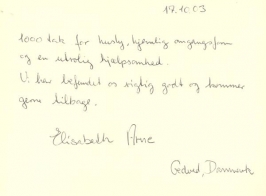 17.10.03
1000 tak for husly, hjemlig omgangsform
og en utrolig hjælpsomhed.
Vi har befundet os rigtig godt og kommer
gerne tilbage.
Elisabeth Arne
Gedved, Danmark